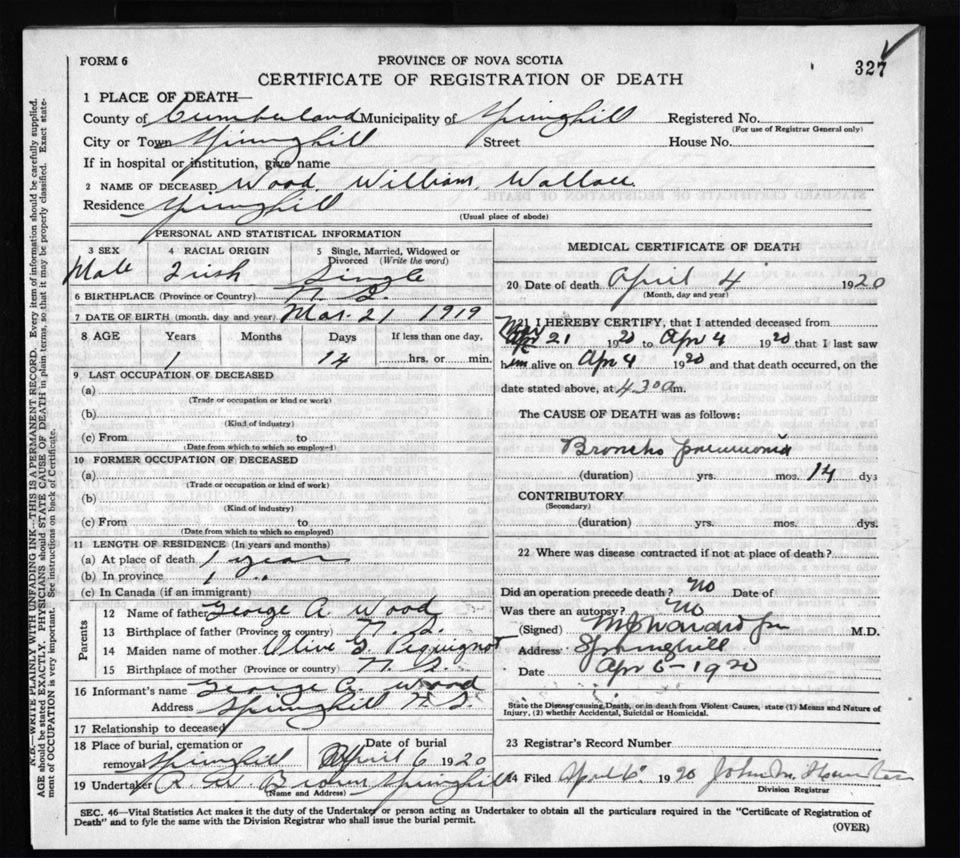 FORM 6
PROVINCE OF NOVA SCOTIA
327
CERTIFICATE OF REGISTRATION OF DEATH
1 PLACE OF DEATH—
County of Cumberland Municipality of Springhill Registered No.
(For use of Registrar General only)
City or Town Springhill Street House No.
If in hospital or institution, give name
2 NAME OF DECEASED Wood, William, Wallace
Residence Springhill
(Usual place of abode)
PERSONAL AND STATISTICAL INFORMATION
3 SEX Male
4 RACIAL ORIGIN Irish
5 Single, Married, Widowed or Divorced (Write the word) Single
6 BIRTHPLACE (Province or Country) N. S.
7 DATE OF BIRTH (month, day and year) Mar. 21 1919
8 AGE Years Months Days If less than one day,
1 14 hrs. or min.
9 LAST OCCUPATION OF DECEASED
(a)
(Trade or occupation or kind or work)
(b)
(Kind of industry)
(c) From to
(Date from which to which so employed)
10 FORMER OCCUPATION OF DECEASED
(a)
(Trade or occupation or kind of work)
(b)
(Kind of industry)
(c) From to
(Date from which to which so employed)
11 LENGTH OF RESIDENCE (In years and months)
(a) At place of death 1 year
(b) In province 1 "
(c) In Canada (if an immigrant)
Parents
12 Name of father George A. Wood
13 Birthplace of father (Province or country) N. S.
14 Maiden name of mother Olive G. Pequignot
15 Birthplace of mother (Province or country) N. S.
16 Informant's name George A. Wood
Address Springhill N. S.
17 Relationship to deceased
18 Place of burial, cremation or removal Springhill
Date of burial April 6 1920
19 Undertaker R. W. Brown Springhill
(Name and Address)
MEDICAL CERTIFICATE OF DEATH
20 Date of death April 4 1920
(Month, day and year)
21 I HEREBY CERTIFY, that I attended deceased from
Mar 21 1920 to Apr 4 1920 that I last saw
him alive on Apr 4 1920 and that death occurred, on the
date stated above, at 4.30 a m.
The CAUSE OF DEATH was as follows:
Broncho pneumonia
(duration) yrs. mos. 14 dys
CONTRIBUTORY
(Secondary)
(duration) yrs. mos. dys.
22 Where was disease contracted if not at place of death?
Did an operation precede death? No Date of
Was there an autopsy? No
(Signed) M.D.
Address Springhill
Date Apr 6 - 1920
State the Disease causing Death, or in death from Violent Causes, state (1) Means and Nature of
Injury, (2) whether Accidental, Suicidal or Homicidal.
23 Registrar's Record Number
24 Filed April 6 1920 John M. Hunter
Division Registrar
SEC. 46—Vital Statistics Act makes it the duty of the Undertaker or person acting as Undertaker to obtain all the particulars required in the "Certificate of Registration of
Death" and to fyle the same with the Division Registrar who shall issue the burial permit.
(OVER)
N.B.—WRITE PLAINLY, WITH UNFADING INK—THIS IS A PERMANENT RECORD. Every item of information should be carefully supplied.
AGE should be stated EXACTLY. PHYSICIANS should STATE CAUSE OF DEATH in plain terms, so that it may be properly classified. Exact state-
ment of OCCUPATION is very important. See instructions on back of Certificate.